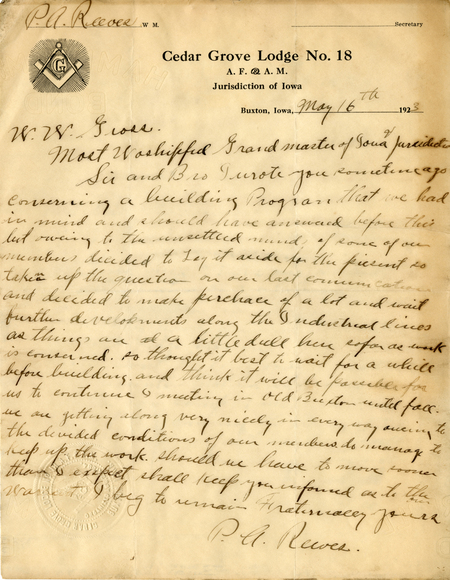 P. A. Reeves W. M.
Secretary
Cedar Grove Lodge No. 18
A. F. & A. M.
Jurisdiction of Iowa
Buxton, Iowa, May 16th 1923
G
W. W. Gross.
Most Woshipfed Grand master of Iowa & Jurisdiction
Sir and Bro I wrote you sometime ago
concerning a building Program that we had
in mind and should have answerd before this
but owing to the unsettled mind, of some of our
members decided to lay it aside for the present so
taken up the question on our last comunication
and decided to make perchace of a lot and wait
further developments along the Industrial lines
as things are at a little dull here sofar as work
is concerned. so thought it best to wait for a while
before building. and think it will be possible for
us to continue meeting in Old Buxton until fall.
we are getting along very nicely in every way owing to
the divided conditions of our members to manage to
keep up the work. should we have to move sooner
than I expect, shall keep you informed as to the
Warrent. I beg to remain Fraternally yours
P. A. Reeves.